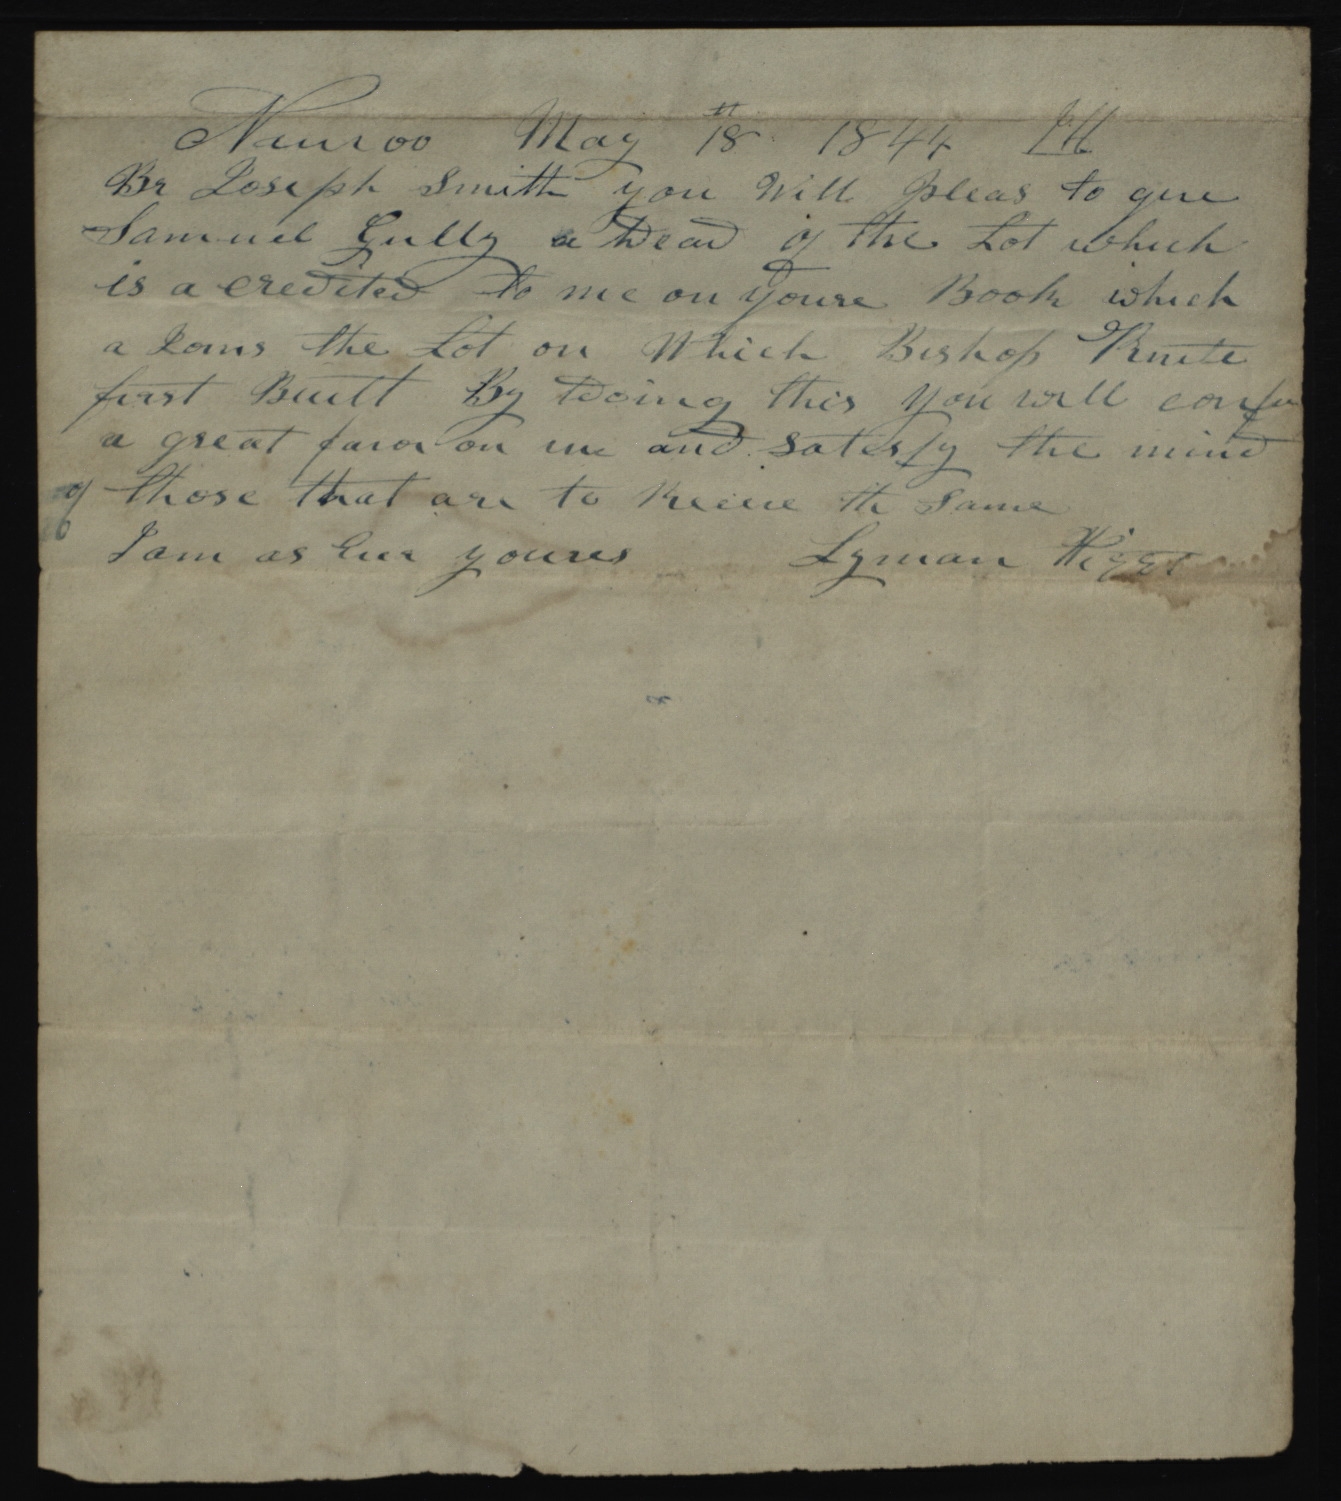 Nauvoo May 18th 1844 Ill
Br Joseph Smith you Will Pleas to give
Samuel Gully a Dead of the Lot which
is a credited to me on youre Book which
a Joins the Lot on Which Bishop Knite
first Built By Doing this you will confer
a great favor on me and satesfy the mind
of those that are to Receive the Same
I am as Ever youres Lyman Wight